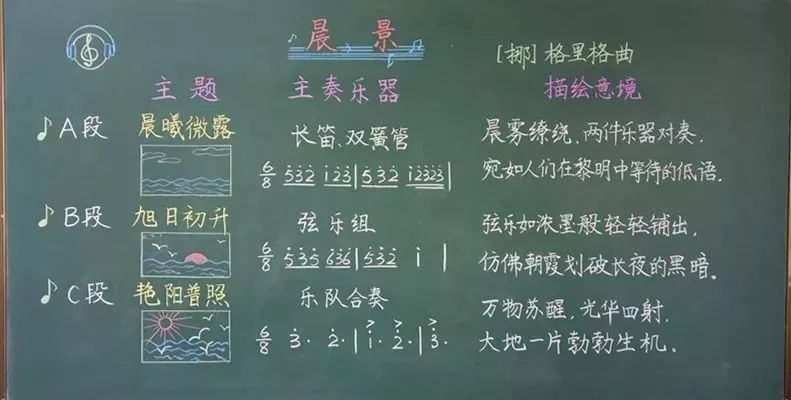 晨景
[挪]格里格曲
主题 主奏乐器 描绘意境
A段 晨曦微露 长笛、双簧管 晨雾缭绕,两件乐器对奏,
6/8 532 123|532 12323| 宛如人们在黎明中等待的低语。
B段 旭日初升 弦乐组 弦乐如浓墨般轻轻铺出,
6/8 535 636|532 i | 仿佛朝霞划破长夜的黑暗。
C段 艳阳普照 乐队合奏 万物苏醒,光华四射,
6/8 3· 2·|i· 2·|3· 大地一片勃勃生机。